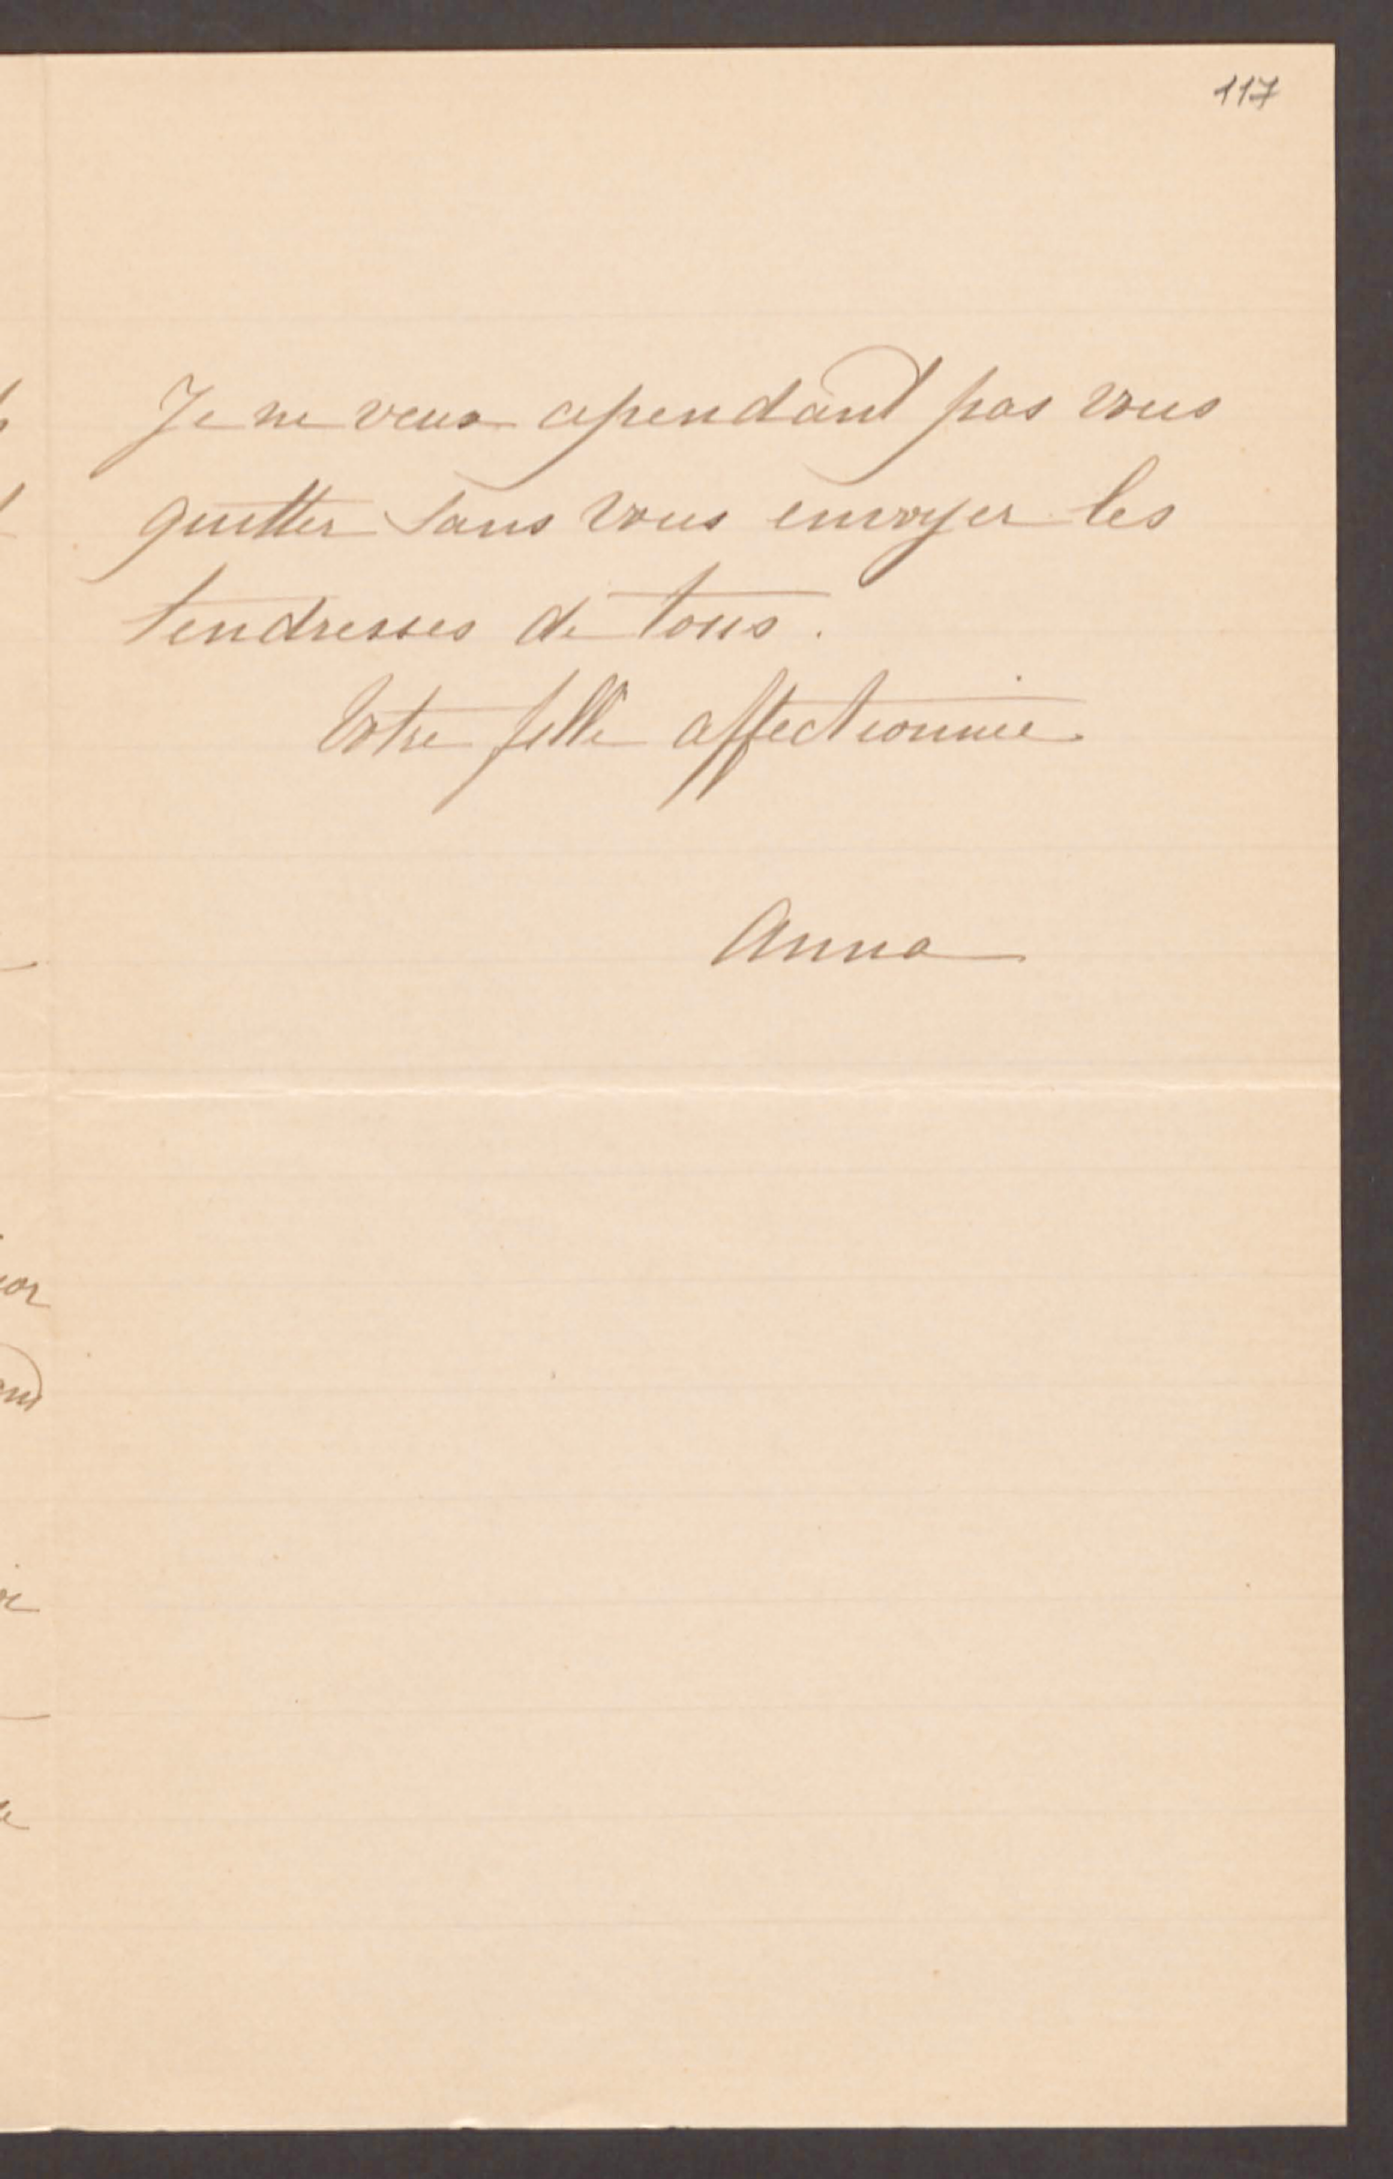 117
Je ne veux cependant pas vous
quitter sans vous envoyer les
tendresses de tous.
Votre fille affectionnée
Anna